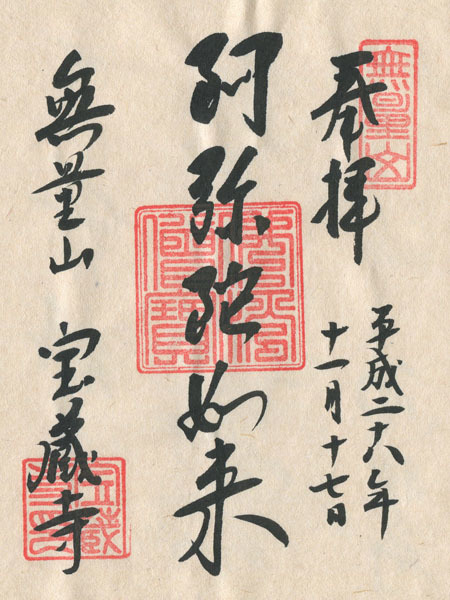 無量山
奉拝
平成二十六年
十一月十七日
阿弥陀如来
無量山 宝蔵寺